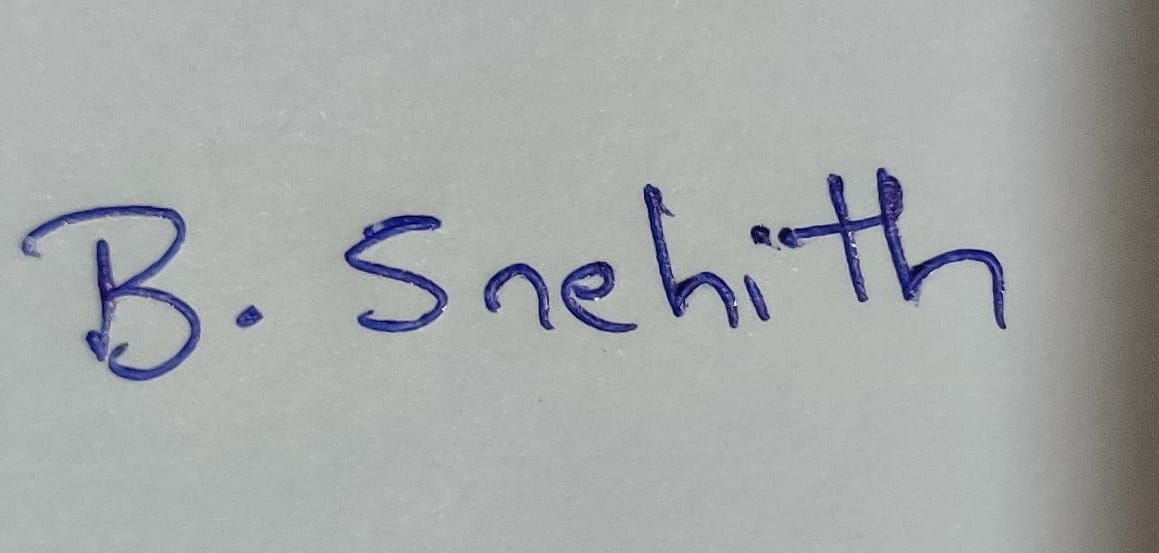 B. Snehith